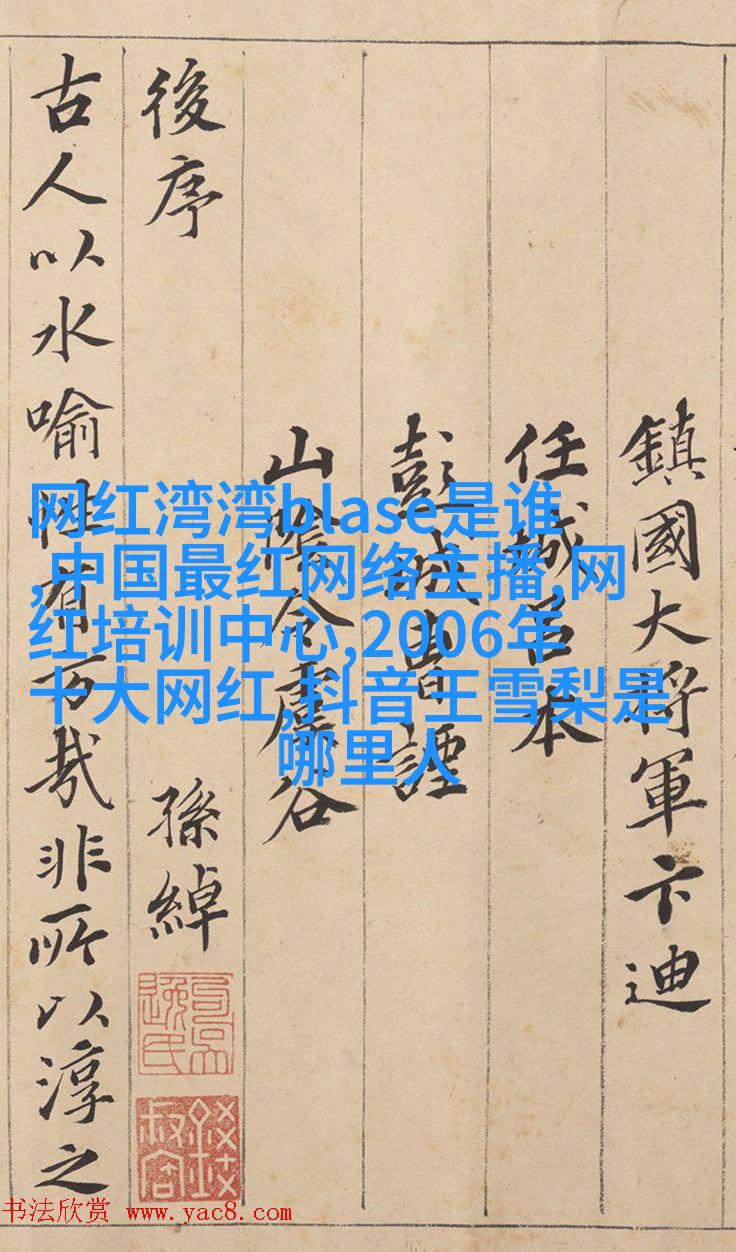 网红湾湾blase是谁
,中国最红网络主播,网
红培训中心,2006年
十大网红,抖音王雪梨是
哪里人
鎮國大將軍卞迪
任城呂本
彭城曹諲
山陰令虞谷
後序 孫綽
古人以水喻性有旨哉非所以淳之
书法欣赏 www.yac8.com